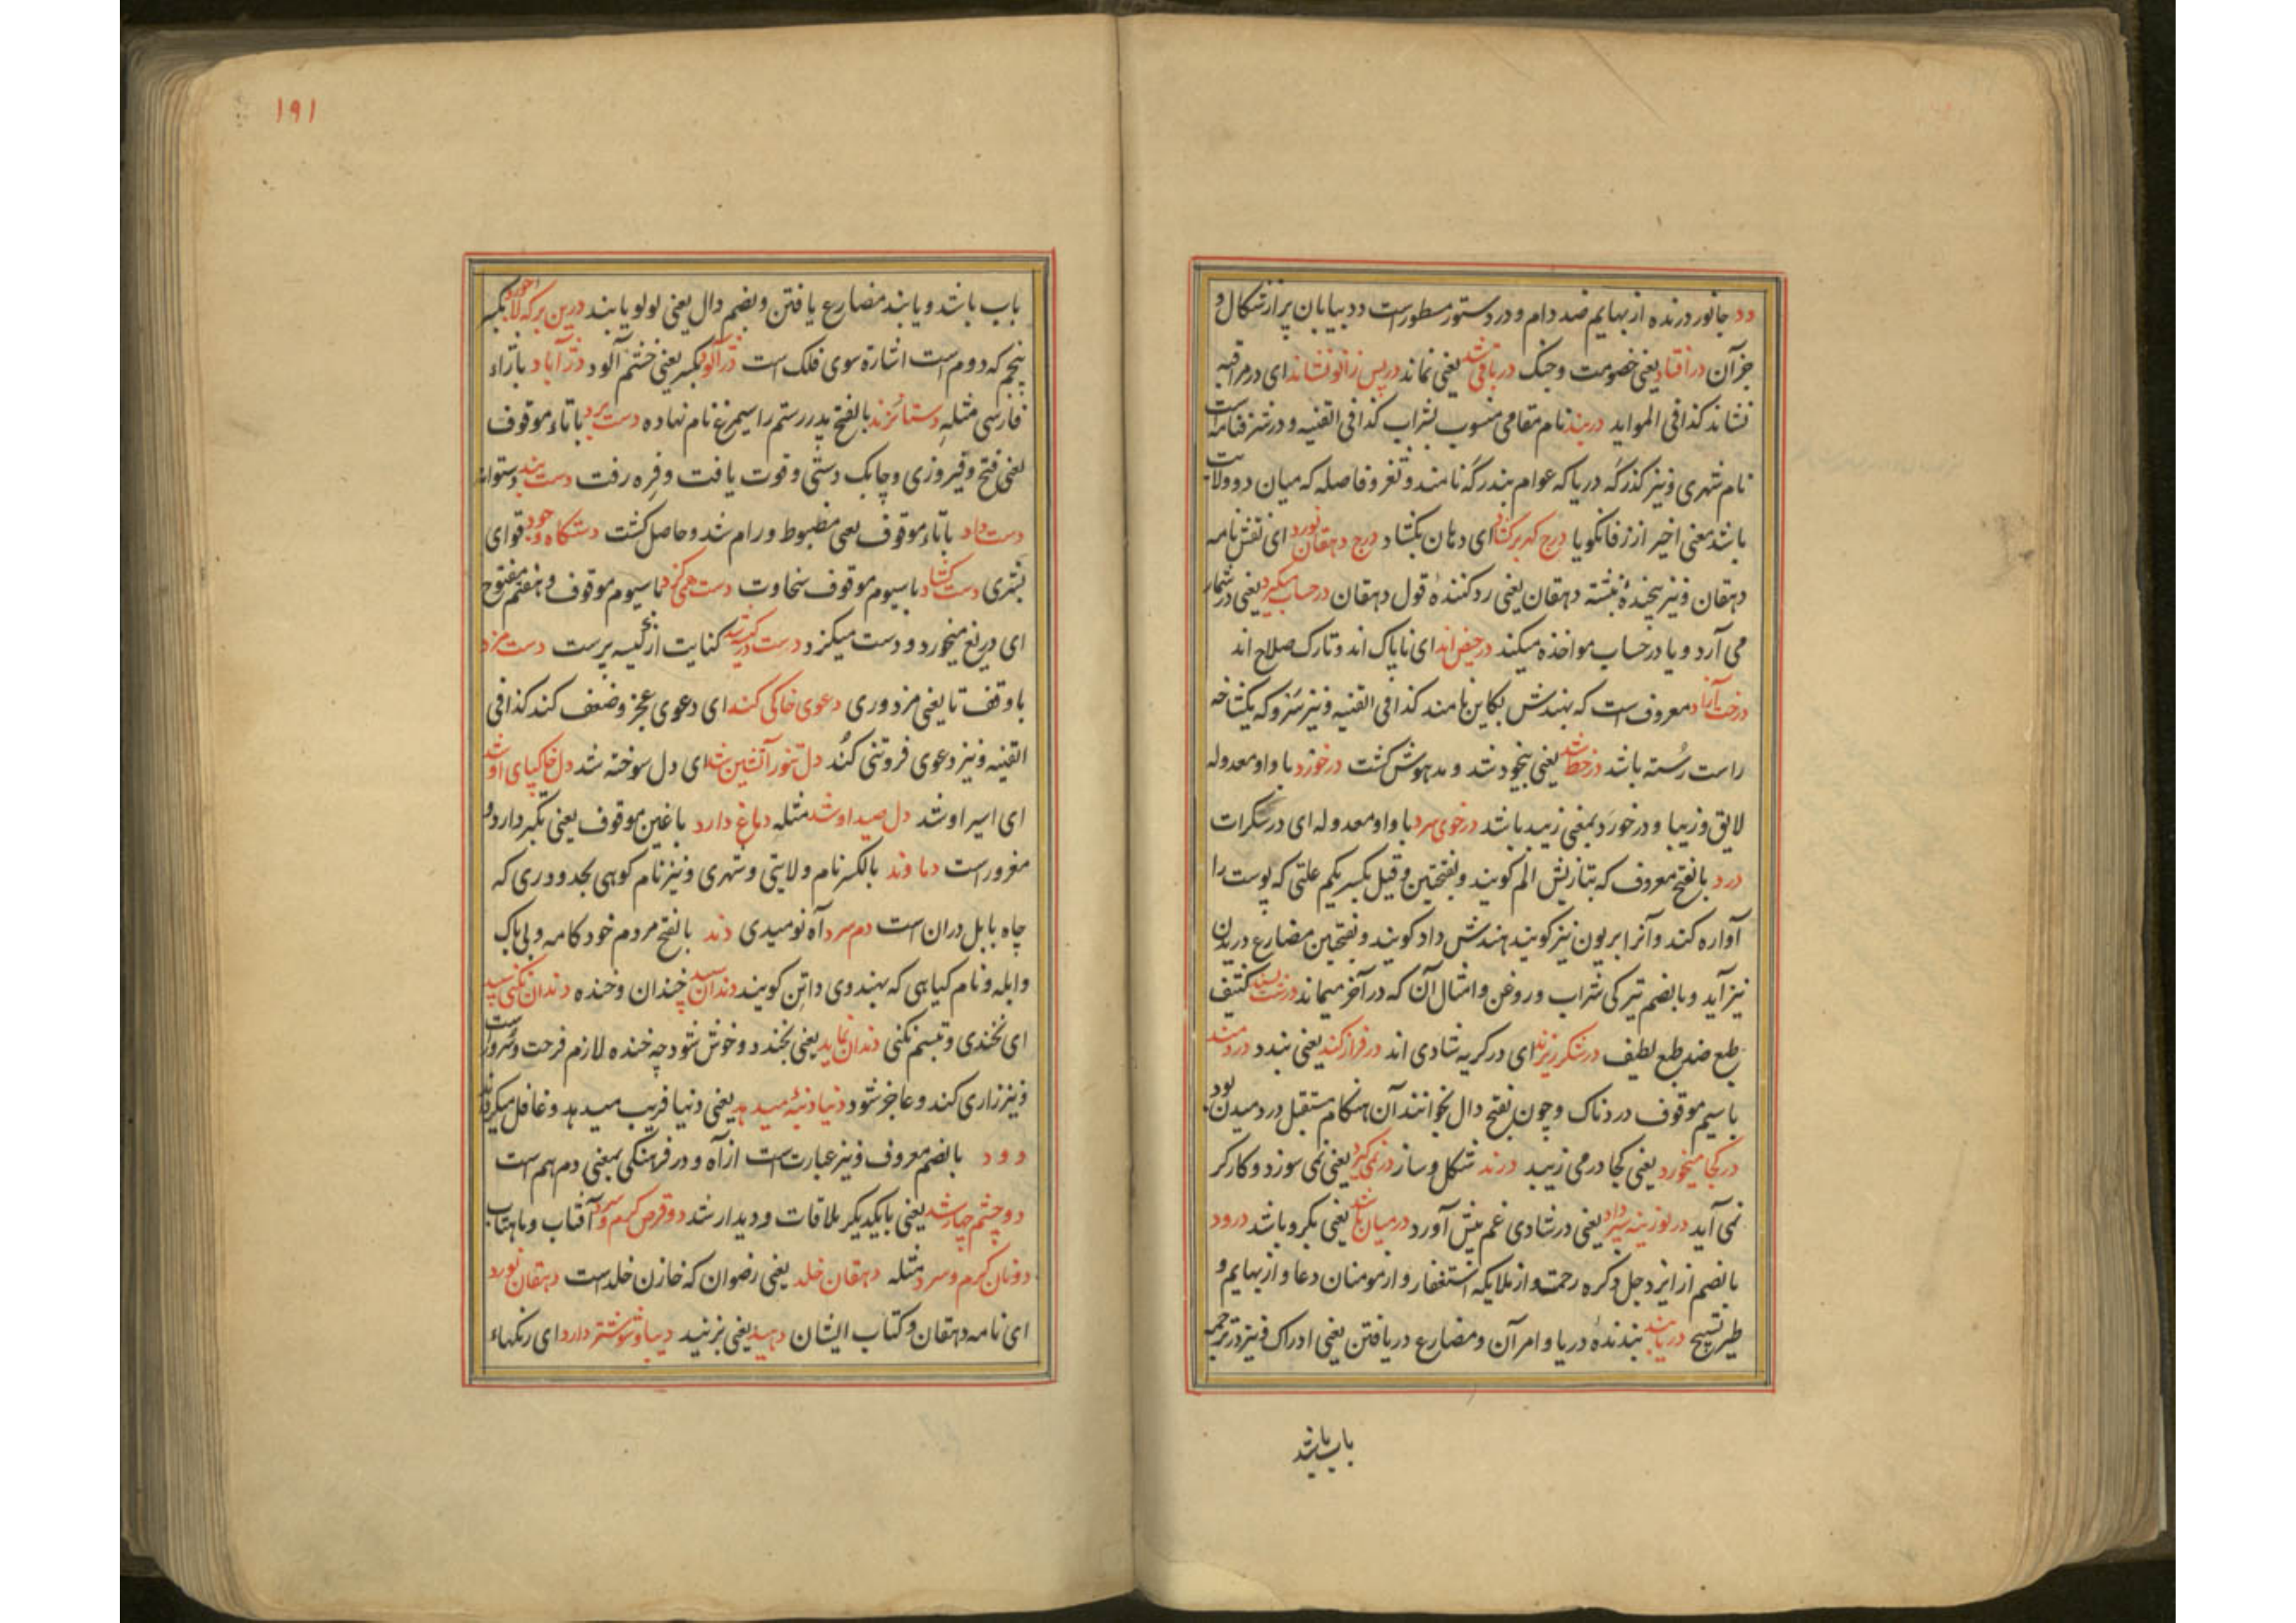 دد جانور درنده از بهایم ضد دام و در دستور مسطور است دد بیابان پر از شکال و
جز آن در افتاد یعنی خصومت و جنک در باقی شد یعنی نماند در پس زانو نشاند ای در مراقبه
نشاند کذا فی الموايد دربند نام مقامی منسوب بشراب کذا فی القنیه و در شرفنامه است
نام شهری و نیز کذرکه دریا که عوام بندرکه نامند و ثغر و فاصله که میان دو ولایت
باشد معنی اخیر از زفانکویا درج کهر برکشاد ای دهان بکشاد درج دهقان نورد ای نقش نامه
دهقان و نیز پیچندهٔ نبشته دهقان یعنی رد کنندهٔ قول دهقان در حساب میکیرد یعنی در شمار
می آرد و یا در حساب مواخذه میکند در حیض اند ای ناپاک اند و تارک صلاح اند
درخت آزاد معروف است که بهندش بکاین نامند کذا فی القنیه و نیز سرو که یکشاخه
راست رسته باشد در خط شد یعنی بیخود شد و مدهوش کشت در خورد با واو معدوله
لایق و زیبا و در خورد بمعنی زیبد باشد در خوی سرد با واو معدوله ای در سکرات
درد بالفتح معروف که بتازیش الم کویند و بفتحتین و قیل بکسر یکم علتی که پوست را
آواره کند و آنرا بریون نیز کویند بهندش داد کویند و بفتحتین مضارع دریدن
نیز آید و بالضم تیرکی شراب و روغن و امثال آن که در آخر میماند درشت پسند کثیف
طبع ضد طبع لطیف در شکر ریزند ای در کریه شادی اند در فراز کند یعنی ببندد دردمند
با سیم موقوف دردناک و چون بفتح دال بخوانند آن هنکام مستقبل دردمیدن بود
در کجا میخورد یعنی کجا در می زیبد درند شکل و ساز در نمی کیرد یعنی نمی سوزد و کارکر
نمی آید در لوزینه سیر داد یعنی در شادی غم پیش آورد در میان باشد یعنی بکرو باشد درود
بالضم از ایزد جل ذکره رحمت و از ملایکه استغفار و از مومنان دعا و از بهایم و
طیر تسبیح دریا بند بندندهٔ دریا و امر آن و مضارع دریافتن یعنی ادراک و نیز در ترجمه
باب باشد
۱۹۱
باب باشد و یابند مضارع یافتن و بضم دال یعنی لولو یابند درین برکه لاجورد بکسر
پنجم که دوم است اشاره سوی فلک است دژ آلود بکسر یعنی خشم آلود دژ آباد با زاء
فارسی مثله دستانزند بالفتح پدر رستم را سیمرغ نام نهاده دست برد با تاء موقوف
یعنی فتح و فیروزی و چابک دستی و قوت یافت و فره رفت دست بند دستوانه
دست داد با تاء موقوف یعنی مضبوط و رام شد و حاصل کشت دستکاه وجود قوای
بشری دست کشاد با سیوم موقوف سخاوت دست همی کزد با سیوم موقوف و هفتم مفتوح
ای دریغ میخورد و دست میکزد کنایت از کیسه پرست دست مزد
با وقف تا یعنی مزدوری دعوی خاکی کند ای دعوی عجز و ضعف کند کذا فی
القنیه و نیز دعوی فروتنی کند دل تنور آتشین شد ای دل سوخته شد دل خاکپای او شد
ای اسیر او شد دل صید او شد مثله دماغ دارد با غین موقوف یعنی تکبر دارد و
مغرور است دماوند بالکسر نام ولایتی و شهری و نیز نام کوهی بحدود ری که
چاه بابل دران است دم سرد آه نومیدی دند بالفتح مردم خود کامه و بی باک
و ابله و نام کیاهی که بهندوی داتن کویند دندان سپید خندان و خنده دندان نکنی سپید
ای نخندی و تبسم نکنی دندان نماید یعنی بخندد و خوش شود چه خنده لازم فرحت و سرور است
و نیز زاری کند و عاجز شود دنیا دنبه میدهد یعنی دنیا فریب میدهد و غافل میکرداند
دود بالضم معروف و نیز عبارت است از آه و در فرهنکی بمعنی دم هم است
دو چشم چار شد یعنی با یکدیکر ملاقات و دیدار شد دو قرص کرم و سرد آفتاب و ماهتاب
دو نان کرم و سرد مثله دهقان خلد یعنی رضوان که خازن خلد است دهقان نورد
ای نامه دهقان و کتاب ایشان دهید یعنی بزنید دیبا و شوشتر دارد ای رنکهاء